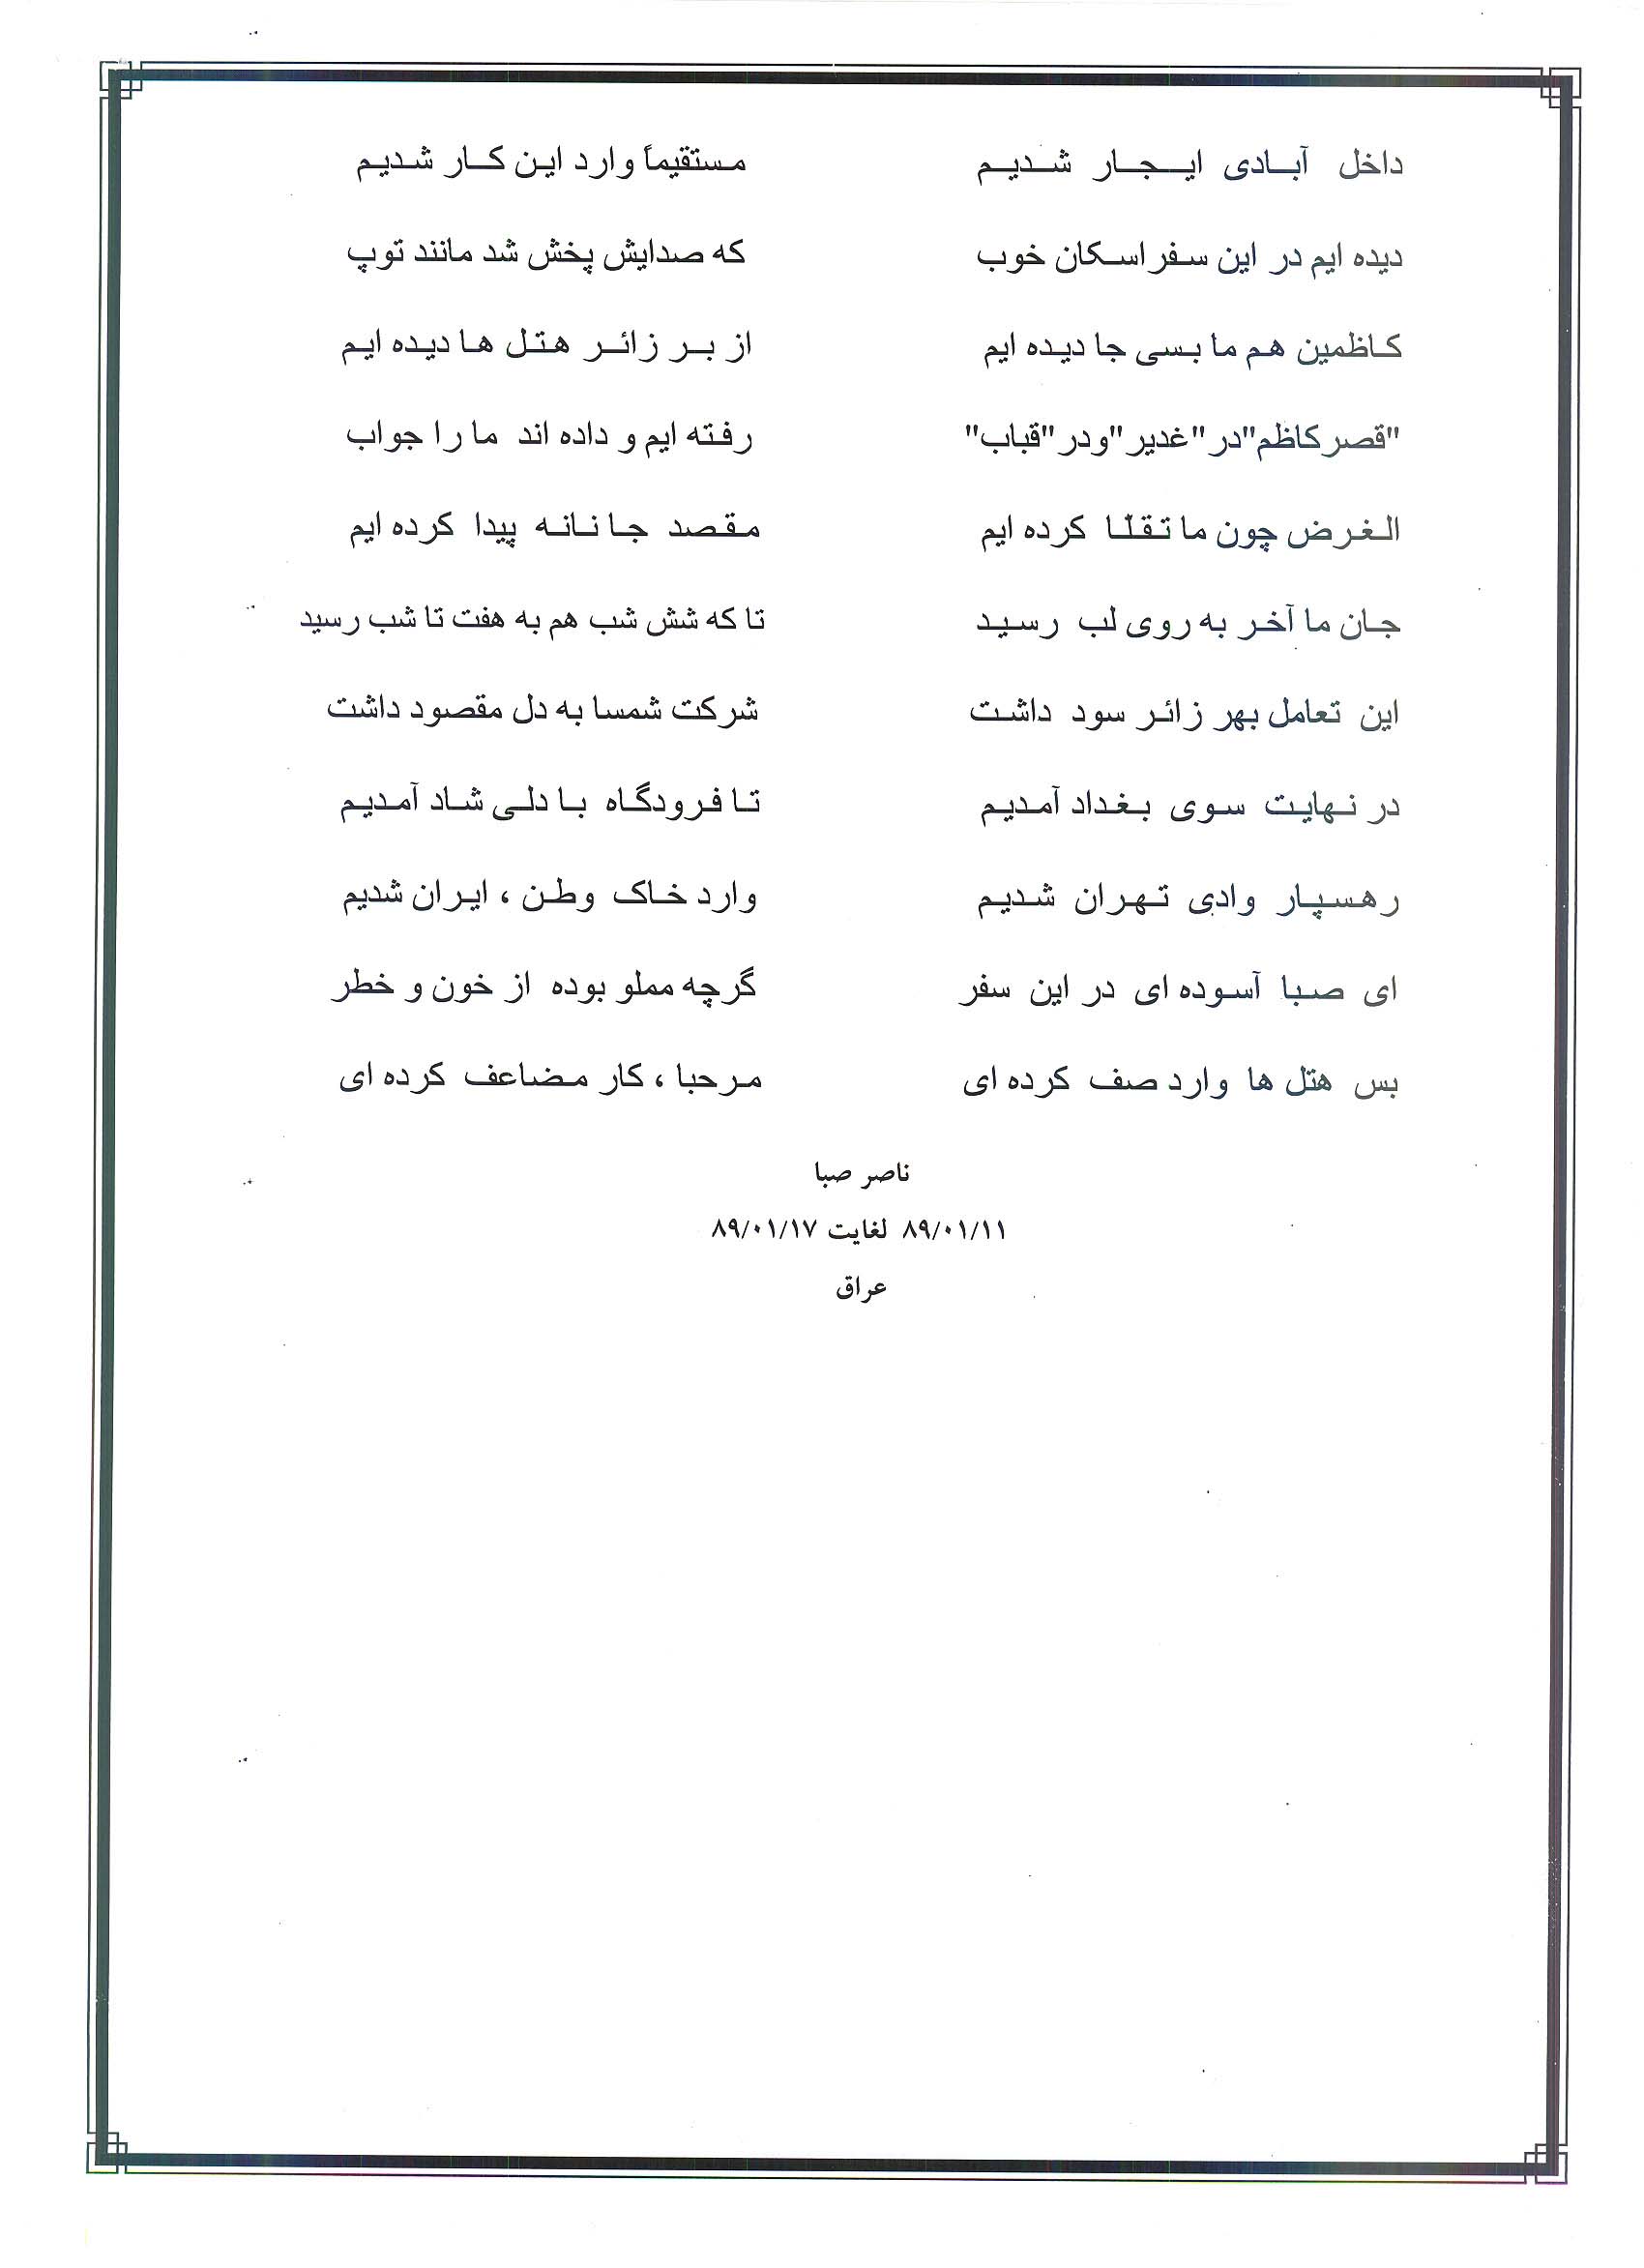 داخل آبادی ایجار شدیم مستقیماً وارد این کار شدیم
دیده ایم در این سفر اسکان خوب که صدایش پخش شد مانند توپ
کاظمین هم ما بسی جا دیده ایم از بر زائر هتل ها دیده ایم
"قصر کاظم" در "غدیر" و در "قباب" رفته ایم و داده اند ما را جواب
الغرض چون ما تقلّا کرده ایم مقصد جانانه پیدا کرده ایم
جان ما آخر به روی لب رسید تا که شش شب هم به هفت تا شب رسید
این تعامل بهر زائر سود داشت شرکت شمسا به دل مقصود داشت
در نهایت سوی بغداد آمدیم تا فرودگاه با دلی شاد آمدیم
رهسپار وادی تهران شدیم وارد خاک وطن ، ایران شدیم
ای صبا آسوده ای در این سفر گرچه مملو بوده از خون و خطر
بس هتل ها وارد صف کرده ای مرحبا ، کار مضاعف کرده ای
ناصر صبا
۸۹/۰۱/۱۱ لغایت ۸۹/۰۱/۱۷
عراق